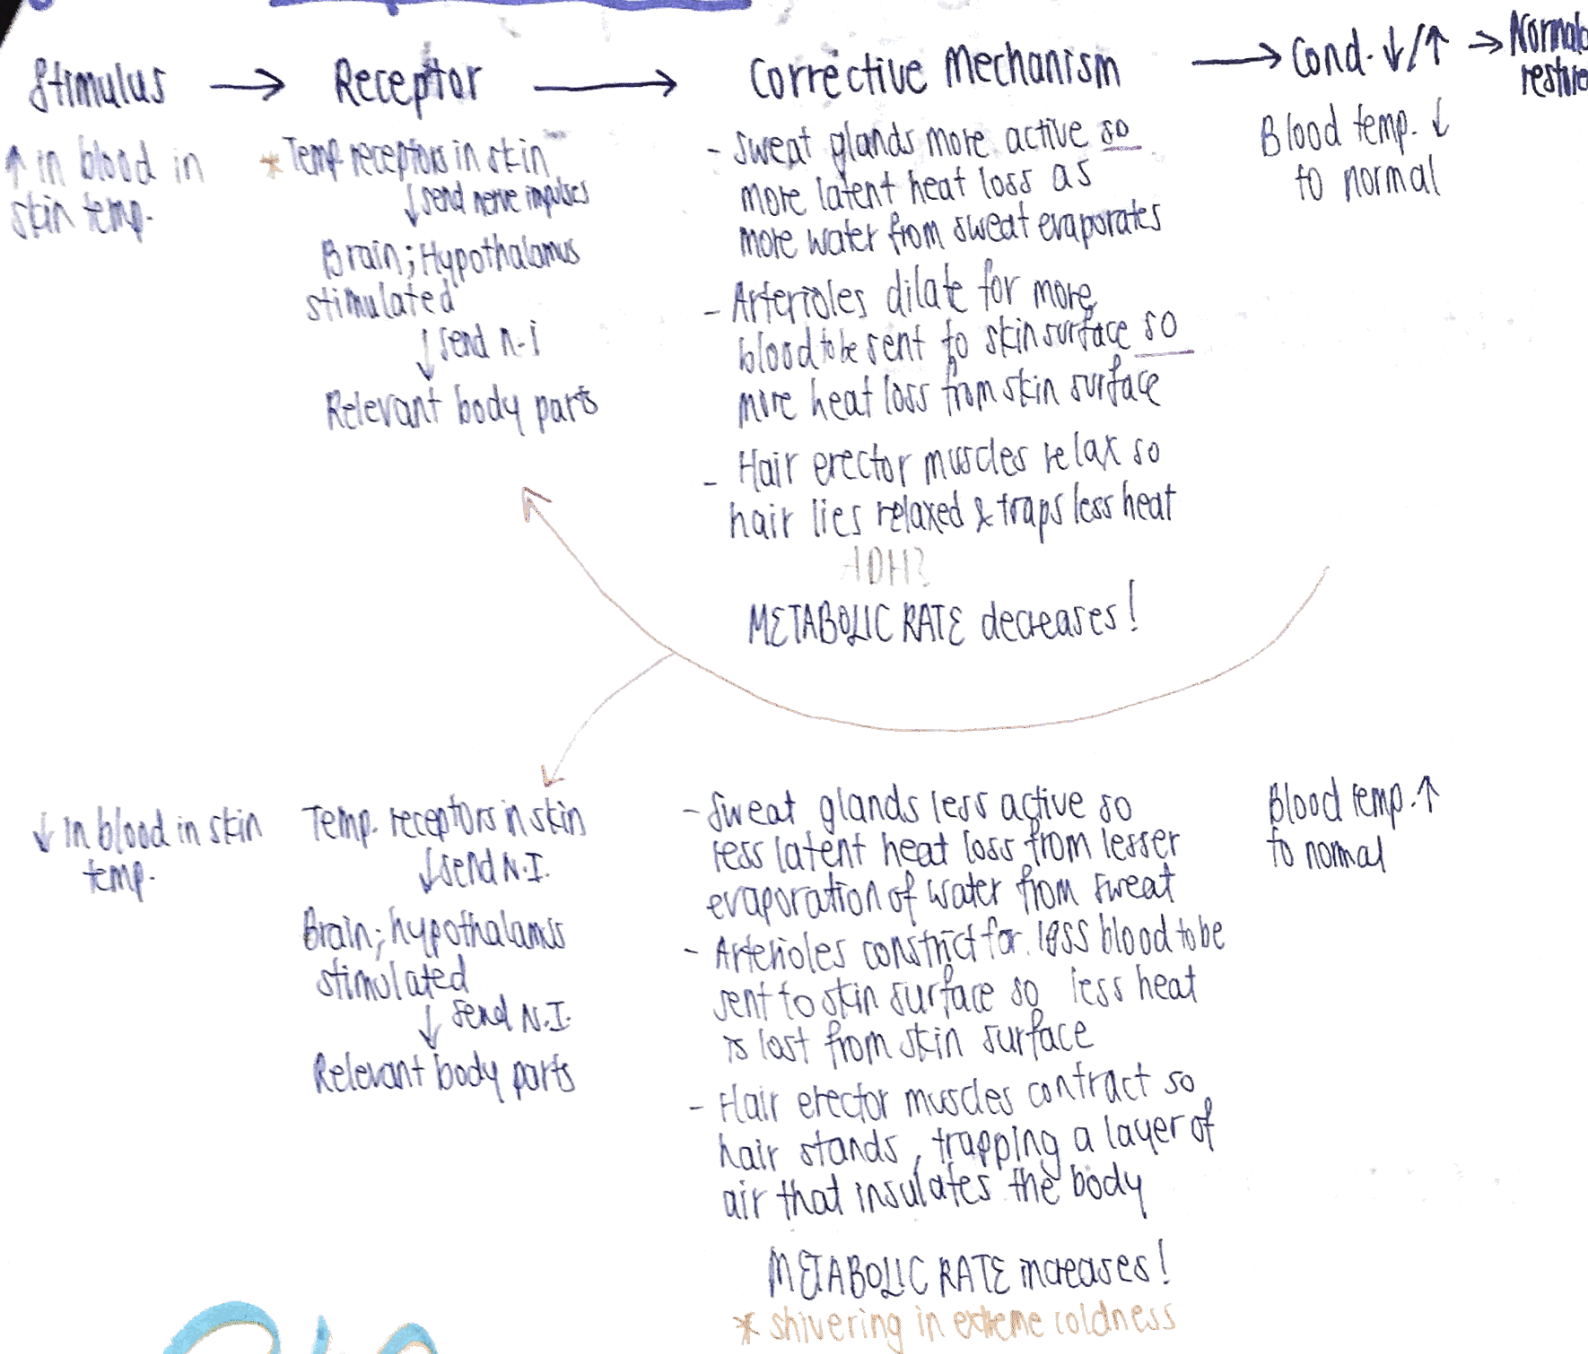 Stimulus → Receptor → Corrective Mechanism → Cond. ↓/↑ → Normal
↑ in blood in
skin temp.
* Temp receptors in skin
↓ send nerve impulses
Brain; Hypothalamus
stimulated
↓ send n.i
Relevant body parts
- Sweat glands more active so
more latent heat loss as
more water from sweat evaporates
- Arterioles dilate for more
blood to be sent to skin surface so
more heat loss from skin surface
- Hair erector muscles relax so
hair lies relaxed & traps less heat
ADH?
METABOLIC RATE decreases!
Blood temp. ↓
to normal
↓ in blood in skin
temp.
Temp. receptors in skin
↓ send N.I.
Brain; hypothalamus
stimulated
↓ send N.I.
Relevant body parts
- Sweat glands less active so
less latent heat loss from lesser
evaporation of water from sweat
- Arterioles constrict for less blood to be
sent to skin surface so less heat
is lost from skin surface
- Hair erector muscles contract so
hair stands, trapping a layer of
air that insulates the body
METABOLIC RATE increases!
* shivering in extreme coldness
Blood temp. ↑
to normal